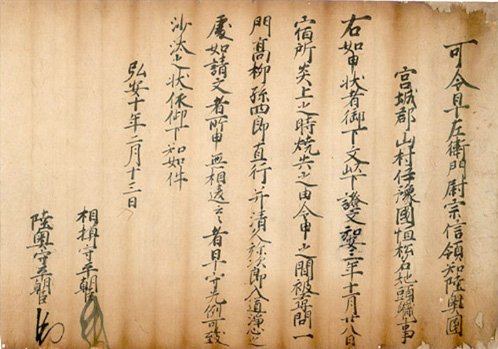 可令早左衛門尉宗信領知陸奥國
宮城郡山村伊豫國恒松名地頭職事
右如申状者御下文以下證文弘安三年十月廿八日
宿所炎上之時焼失之由令申之間被尋問一
門高柳孫四郎直行并清久弥次郎入道浄心之
處如請文者所申無相違云々者早守先例可致
沙汰之状依仰下知如件
弘安十年二月十三日
相模守平朝臣
陸奥守平朝臣